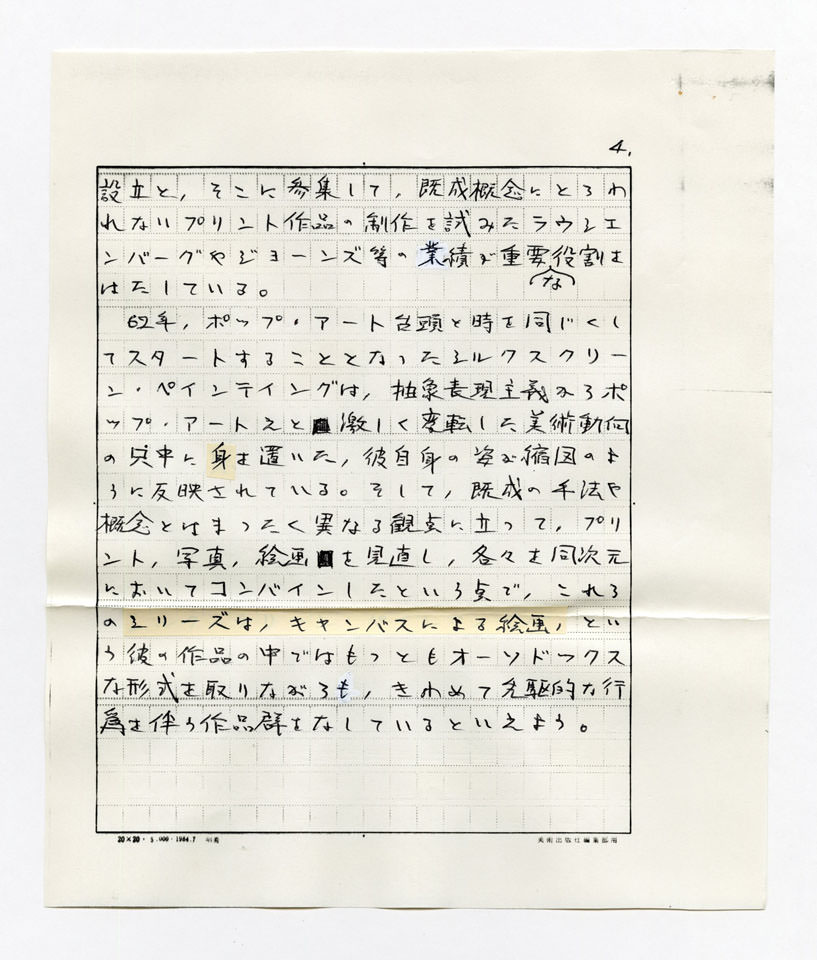 4.
設立と，そこに参集して，既成概念にとらわ
れないプリント作品の制作を試みたラウシェ
ンバーグやジョーンズ等の業績が重要な役割を
はたしている。
62年，ポップ・アート台頭と時を同じくし
てスタートすることとなったシルクスクリー
ン・ペインティングは，抽象表現主義からポ
ップ・アートえと激しく変転した美術動向
の只中に身を置いた，彼自身の姿が縮図のよ
うに反映されている。そして，既成の手法や
概念とはまったく異なる観点に立って，プリ
ント，写真，絵画を見直し，各々を同次元
においてコンバインしたという点で，これら
のシリーズは，キャンバスによる絵画，とい
う彼の作品の中ではもっともオーソドックス
な形式を取りながらも，きわめて先駆的な行
為を伴う作品群をなしているといえよう。
20×20・5.000・1984.7
美術出版社編集部用